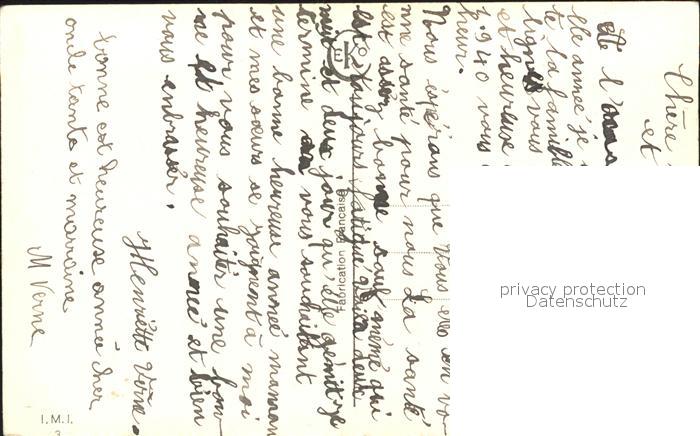 Chère
et
A l'
elle année je
te la famille
lignes vous
et heureuse
1940 vous
heur.
Nous espérons que vous en
me santé pour nous La santé
est assez bonne sauf même qui
est toujours fatigué
nuit et deux jour qu'elle gémit je
termine en vous souhaitant
une bonne heureuse année maman
et mes soeurs se joignent à moi
pour vous souhaiter une bon
ne et heureuse année et bien
vous embrasser.
Henriette Verne.
bonne est heureuse année cher
oncle tante et marraine
M Verne
Fabrication Française
I.M.I.
3
privacy protection
Datenschutz